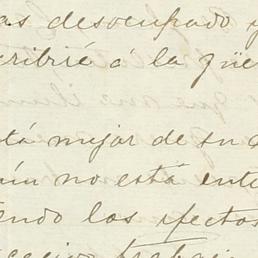 as desocupado y
cribiré á la güe
tá mejor de su
ún no está ente
endo los efectos